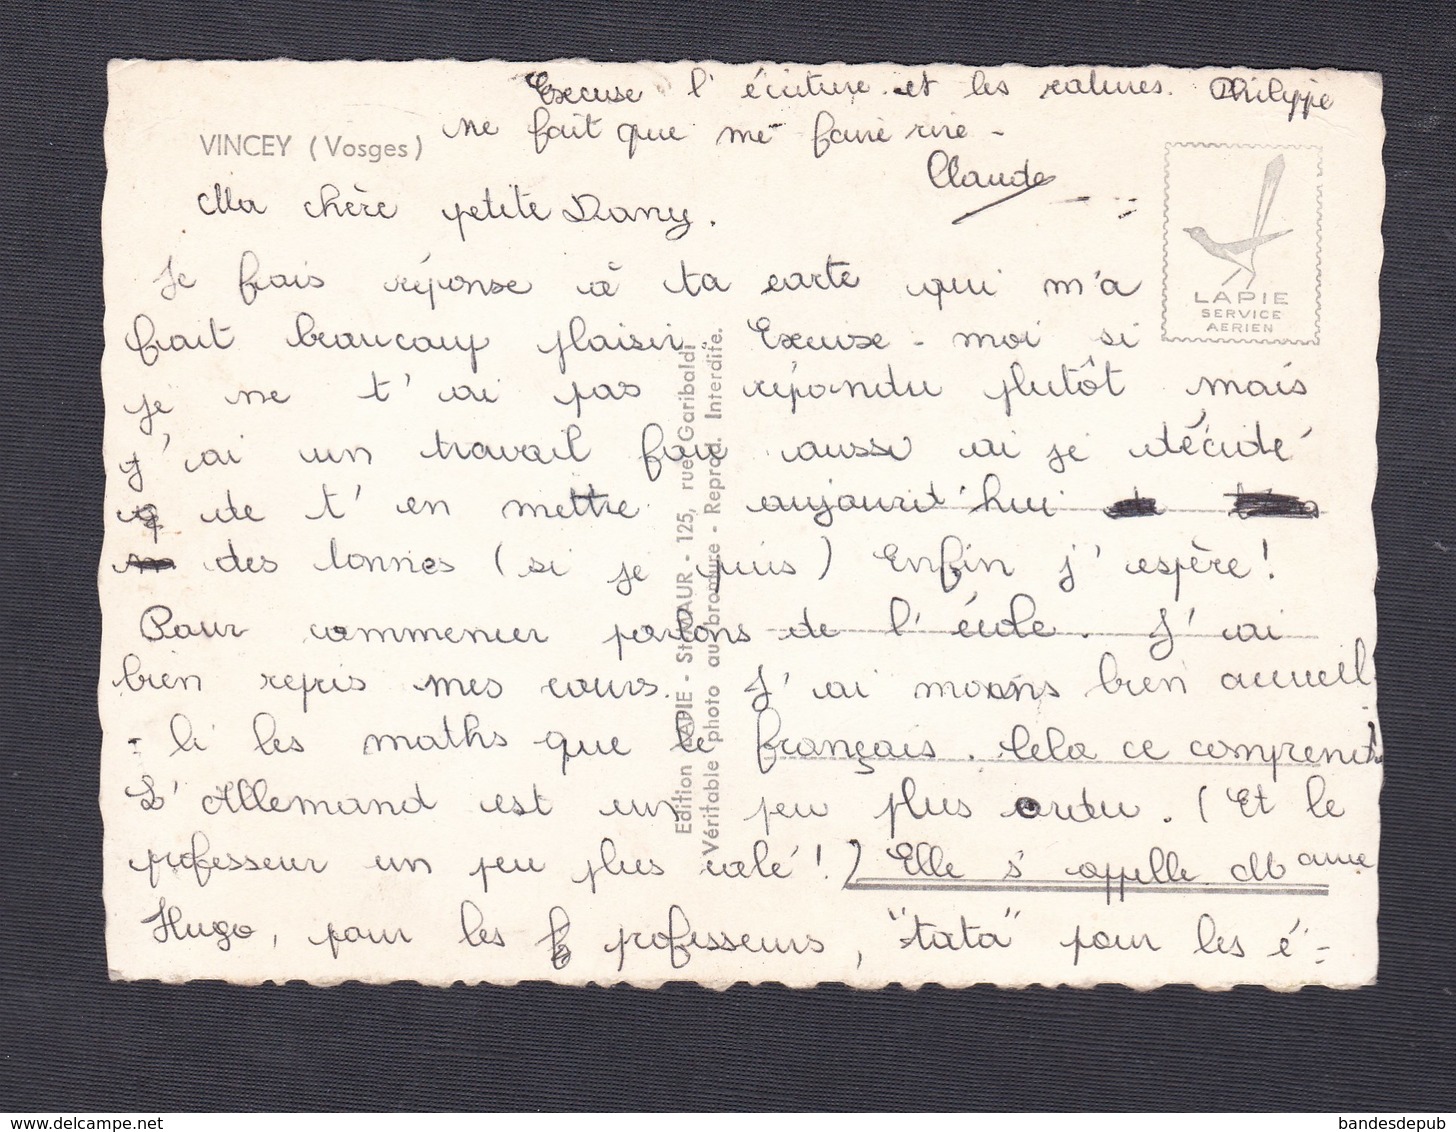 Excuse l'écriture et les ratures. Philippe
VINCEY (Vosges) ne fait que me faire rire -
Claude
Ma chère petite Dany.
Je fais réponse à ta carte qui m'a
fait beaucoup plaisir. Excuse-moi si
je ne t'ai pas répondu plutôt mais
j'ai un travail fou aussi ai je décidé
de t'en mettre aujourd'hui
des tonnes (si je puis) Enfin j'espère!
Pour commencer parlons de l'école. J'ai
bien repris mes cours. J'ai moins bien accueil
- li les maths que le français. Cela ce comprend
L'Allemand est un peu plus ardu. (Et le
professeur un peu plus calé!) Elle s'appelle Mame
Hugo, pour les professeurs, "tata" pour les é-
LAPIE
SERVICE
AERIEN
Edition LAPIE - St-MAUR - 125, rue Garibaldi
Véritable photo au bromure - Reprod. Interdite.
delcampe.net
bandesdepub